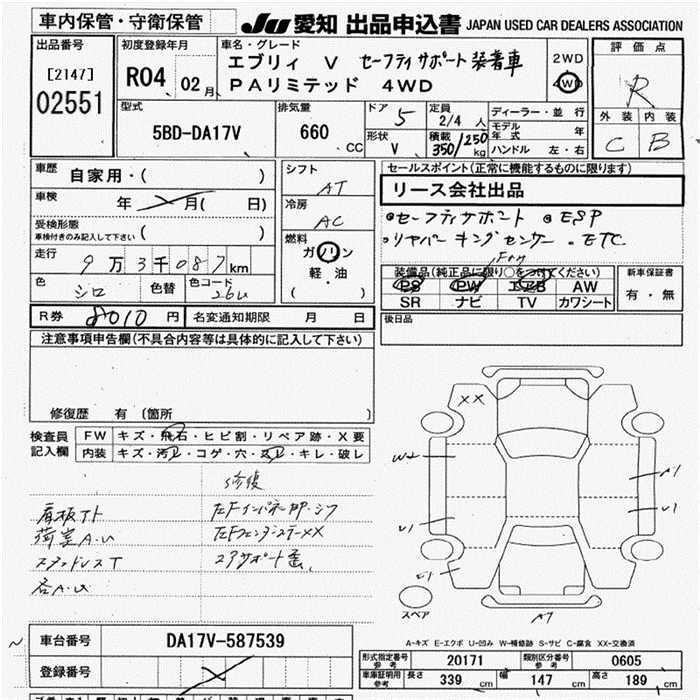 車内保管・守衛保管
JU 愛知 出品申込書 JAPAN USED CAR DEALERS ASSOCIATION
出品番号
[2147]
02551
初度登録年月
R04 02 月
車名・グレード
エブリィ V セーフティサポート装着車
PAリミテッド 4WD
2WD
4WD
評価点
R
外装 内装
C B
型式
5BD-DA17V
排気量
660 CC
ドア 5
形状 V
定員 2/4 人
積載 350/250 kg
ディーラー・並行
モデル年式 年
ハンドル 左・右
車歴 自家用・( )
車検 年 月( 日)
受検形態
車検付きのみ記入して下さい ( )
走行 9万3千087km
色 シロ 色替 色コード 26U
シフト AT
冷房 AC
燃料
ガソリン
軽・油
( )
セールスポイント(正常に機能するものに限ります)
リース会社出品
◎セーフティサポート ◎ESP
○リヤパーキングセンサー 。ETC
装備品(純正品に限り○をつけてください)
PS PW エアB AW
SR ナビ TV カワシート
新車保証書
有・無
R券 8010 円 名変通知期限 月 日
後日品
注意事項申告欄(不具合内容等は具体的に記入して下さい)
修復歴 有(箇所 )
検査員記入欄
FW キズ・飛石・ヒビ割・リペア跡・X要
内装 キズ・汚レ・コゲ・穴・スレ・キレ・破レ
修復
看板下ト 左Fインパネ部P.シワ
荷室A.U 左FフェンダーステーXX
ステンドレスT コアサポート歪
各A.U
XX
W2
U1
E1
A1
U1
A7
スペア
A-キズ E-エクボ U-凹み W-補修跡 S-サビ C-腐食 XX-交換済
車台番号 DA17V-587539
登録番号
形式指定番号 参考 20171 類別区分番号 参考 0605
車庫証明用 参考 長さ 339 cm 幅 147 cm 高さ 189 cm